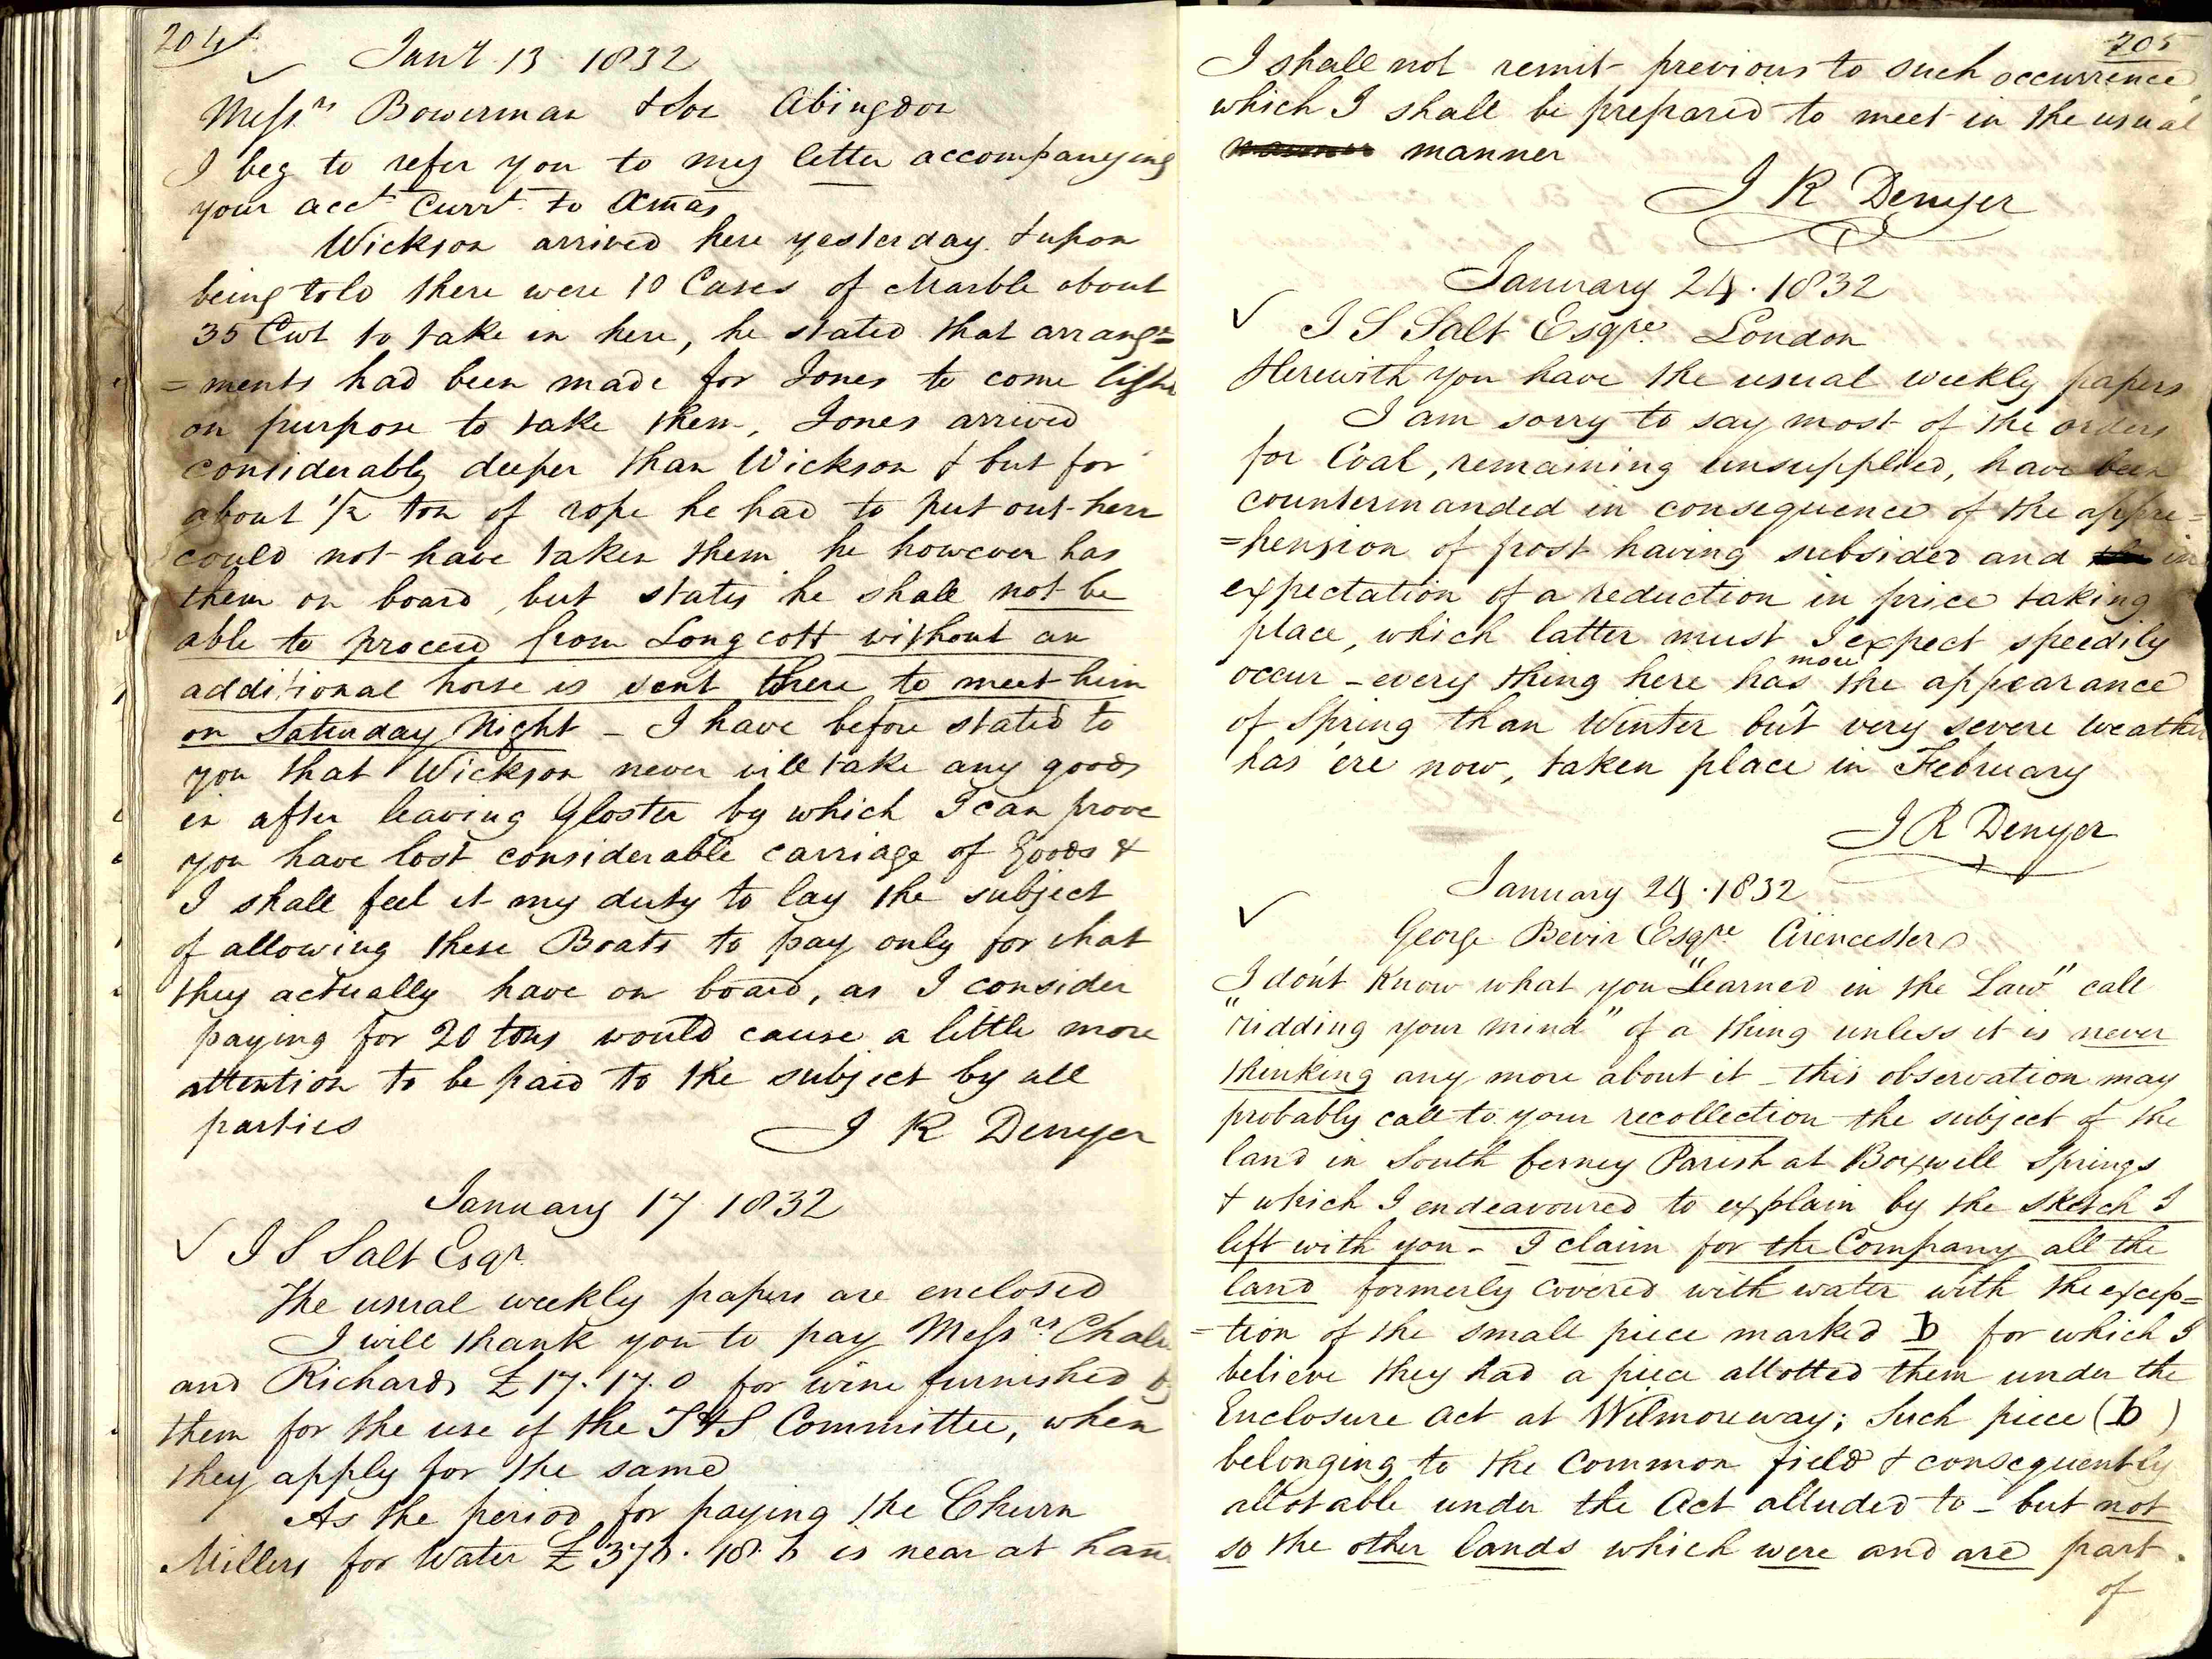 204
Jany. 13. 1832
Messrs Bowerman & Son Abingdon
I beg to refer you to my letter accompanying
your acct Currt to Xmas
Wickson arrived here yesterday & upon
being told there were 10 Cases of Marble about
35 Cwt to take in here, he stated that arrange=
=ments had been made for Jones to come light
on purpose to take them, Jones arrived
considerably deeper than Wickson & but for
about 1/2 ton of rope he had to put out here
could not have taken them he however has
them on board, but states he shall not be
able to proceed from Longcott without an
additional horse is sent there to meet him
on Saturday Night - I have before stated to
you that Wickson never will take any goods
in after leaving Gloster by which I can prove
you have lost considerable carriage of Goods &
I shall feel it my duty to lay the subject
of allowing these Boats to pay only for what
they actually have on board, as I consider
paying for 20 tons would cause a little more
attention to be paid to the subject by all
parties
J R Denyer
January 17 1832
J S Salt Esqr
The usual weekly papers are enclosed
I will thank you to pay Messrs
and Richards £17.17.0 for wine furnished by
them for the use of the T&S Committee, when
they apply for the same
As the period for paying the Churn
Millers for Water is near at hand
205
I shall not remit previous to such occurrence,
which I shall be prepared to meet in the usual
manner
J R Denyer
January 24. 1832
J S Salt Esqre London
Herewith you have the usual weekly papers
I am sorry to say most of the orders
for Coal, remaining unsupplied, have been
countermanded in consequence of the appre=
=hension of frost having subsided and in
expectation of a reduction in price taking
place, which latter must I expect speedily
occur - every thing here has more the appearance
of Spring than Winter but very severe weather
has 'ere now, taken place in February
J R Denyer
January 24. 1832
George Bevir Esqre Cirencester
I don't know what you "Learned in the Law" call
"ridding your mind" of a thing unless it is never
thinking any more about it - this observation may
probably call to your recollection the subject of the
land in South Cerney Parish at Boxwell Springs
& which I endeavoured to explain by the sketch I
left with you - I claim for the Company all the
land formerly covered with water with the excep=
=tion of the small piece marked D for which I
believe they had a piece allotted them under the
Enclosure Act at Wilmoreway; Such piece (D)
belonging to the Common field & consequently
allotable under the Act alluded to - but not
so the other lands which were and are part
of